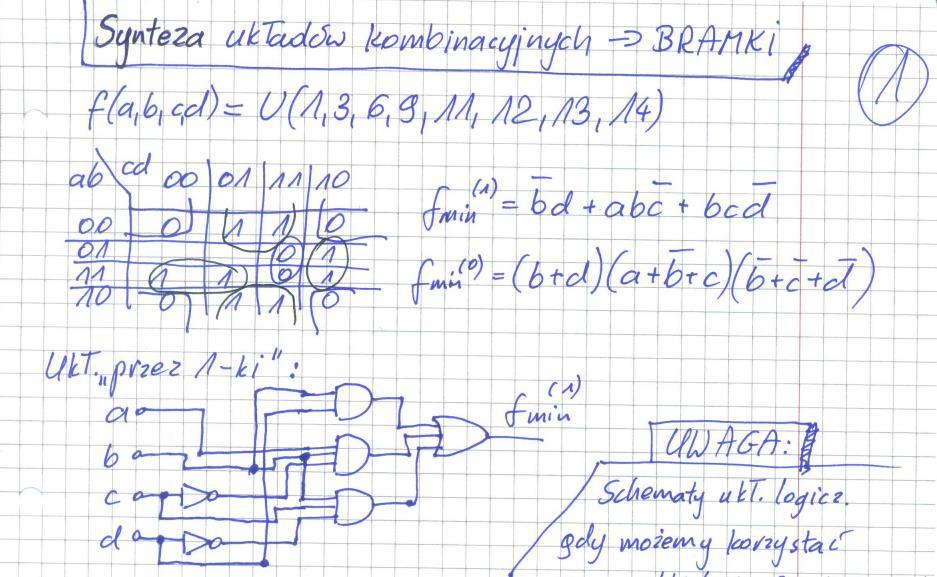 Synteza układów kombinacyjnych → BRAMKI
1
f(a,b,c,d) = U(1,3,6,9,11,12,13,14)
ab\cd 00 01 11 10
00 0 1 1 0
01 0 1
11 1 1 0 1
10 0 1 1 0
fmin⁽¹⁾ = b̅d + abc̅ + bcd̅
fmin⁽⁰⁾ = (b+d)(a+b̅+c)(b̅+c̅+d̅)
Ukł. „przez 1-ki”:
a
b
c
d
fmin⁽¹⁾
UWAGA:
Schematy ukł. logicz.
gdy możemy korzystać